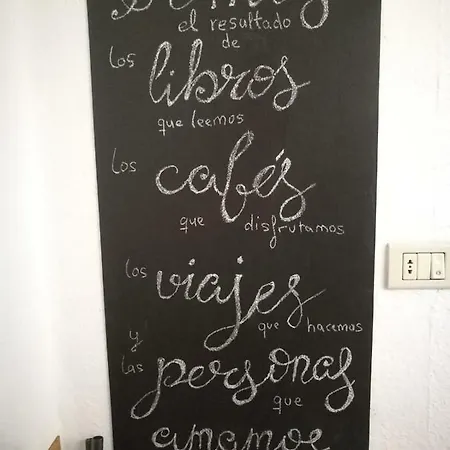 Somos
el resultado
de
los
libros
que leemos
los
cafés
que disfrutamos
los
viajes
que hacemos
y
las
personas
que
amamos